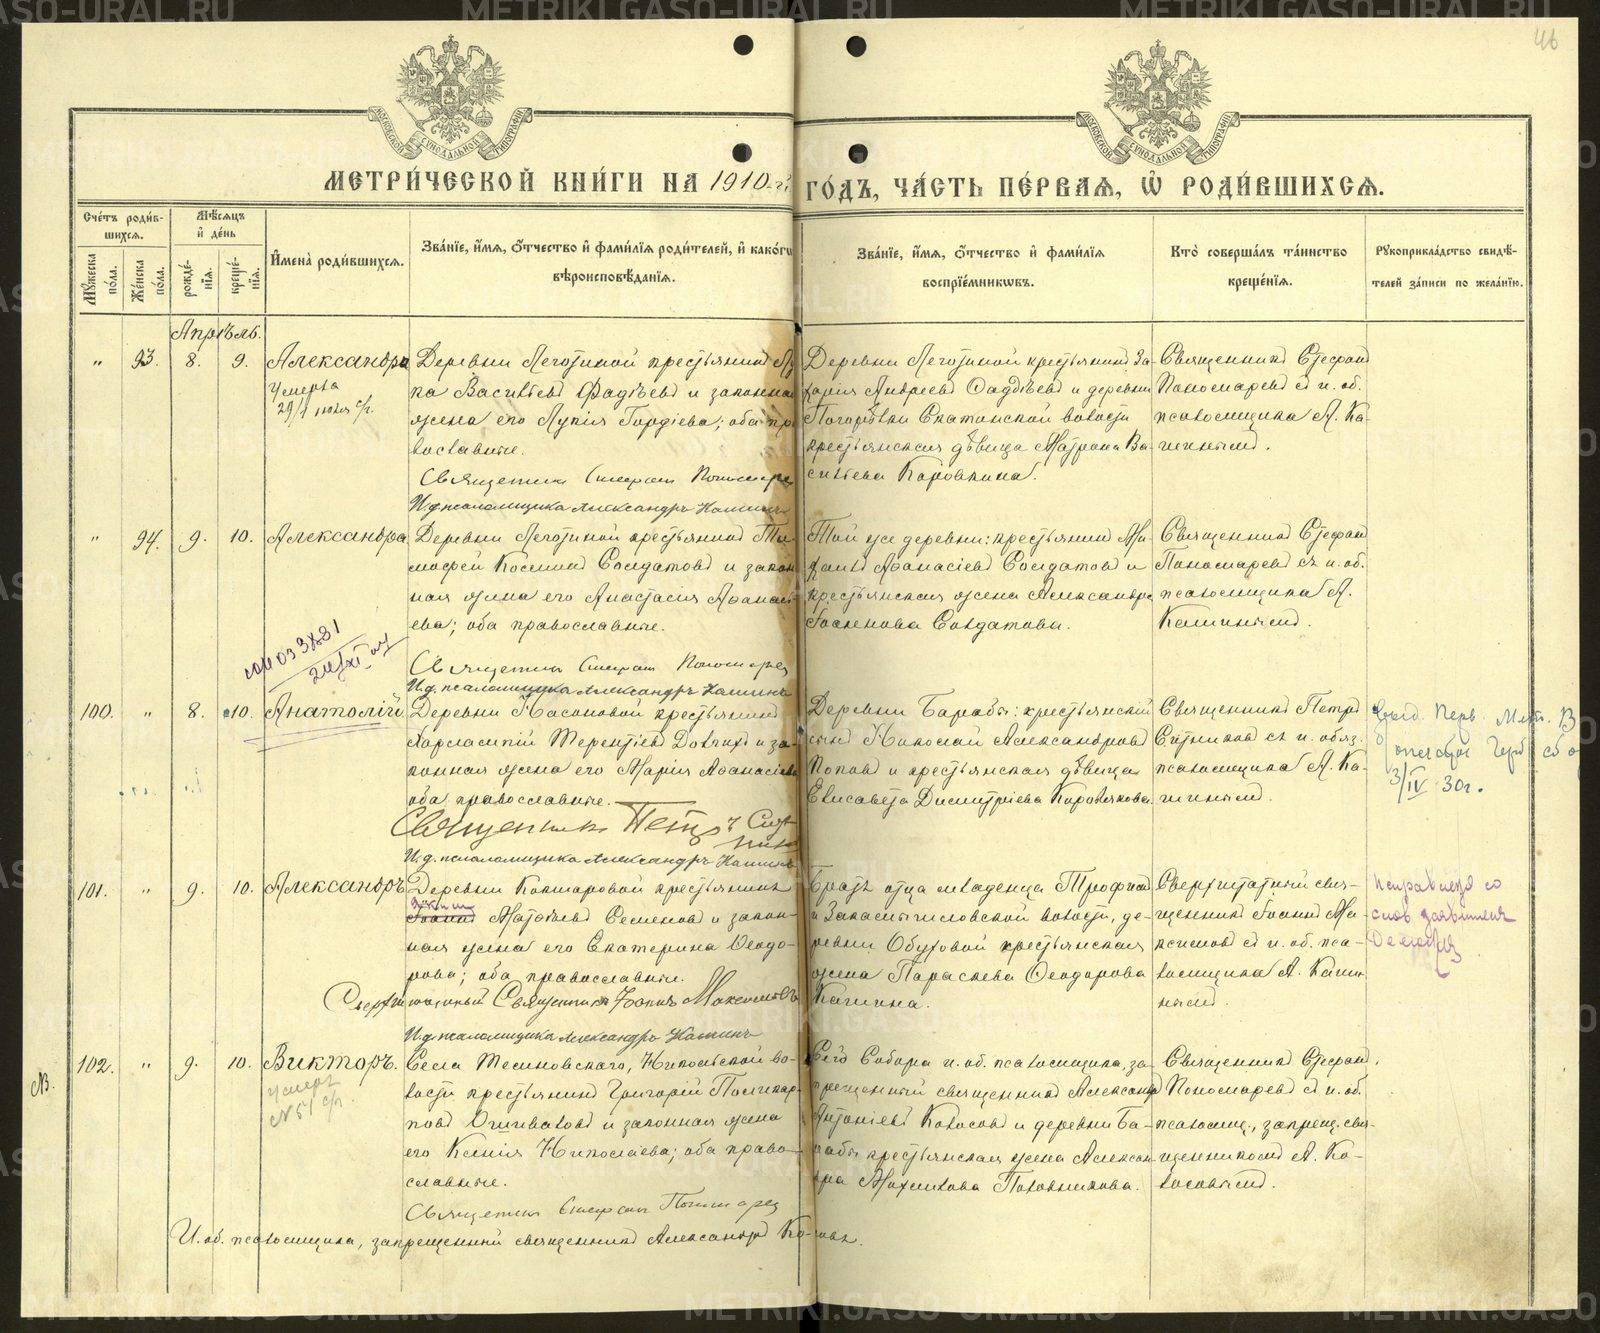 46
МЕТРИЧЕСКОЙ КНИГИ НА 1910-й ГОДЪ, ЧАСТЬ ПЕРВАЯ, Ѡ РОДИВШИХСЯ.
Счетъ родив-
шихся.
Мѣсяцъ
и день
Мужеска
пола.
Женска
пола.
рожде-
нія.
креще-
нія.
Имена родившихся.
Званіе, имя, отчество и фамилія родителей, и какогѡ
вѣроисповѣданія.
Званіе, имя, отчество и фамилія
воспріемникѡвъ.
Кто совершалъ таинство
крещенія.
Рукоприкладство свидѣ-
телей записи по желанію.
Апрѣль.
" 93. 8. 9. Александра
Умерла
Деревни Леготиной крестьянинъ Лу-
ка Васильевъ Фадѣевъ и законная
жена его Лукія Гордіева; оба пра-
вославные.
Священникъ Стефанъ Пономаревъ
И.д. псаломщика Александръ Кашинъ
Деревни Леготиной крестьянинъ За-
харія Андреевъ Фаддѣевъ и деревни
Погорѣлки Скатинской волости
крестьянская дѣвица Матрона Ва-
сильева Коровкина.
Священникъ Стефанъ
Пономаревъ съ и. об.
псаломщика А. Ка-
шинымъ.
" 94. 9. 10. Александра
Деревни Леготиной крестьянинъ Ти-
мофей Косминъ Солдатовъ и закон-
ная жена его Анастасия Аѳанась-
ева; оба православные.
Священникъ Стефанъ Пономаревъ
И.д. псаломщика Александръ Кашинъ
Той же деревни: крестьянинъ Ми-
хаилъ Аѳанасіевъ Солдатовъ и
крестьянская жена Александра
Іоаннова Солдатова.
Священникъ Стефанъ
Пономаревъ съ и. об.
псаломщика А.
Кашинымъ.
100. " 8. 10. Анатолій
Деревни Насоновой крестьянинъ
Харлампій Терентіевъ Довгихъ и за-
конная жена его Марія Аѳанасіева
оба православные.
Священникъ Петръ Ситниковъ
И.д. псаломщика Александръ Кашинъ
Деревни Барабы: крестьянскій
сынъ Николай Александровъ
Поповъ и крестьянская дѣвица
Елисавета Димитріева Коровякова.
Священникъ Петръ
Ситниковъ съ и. обяз.
псаломщика А. Ка-
шинымъ.
3/IV 30г.
101. " 9. 10. Александръ
Деревни Кошкаровой крестьянинъ
Іоаннъ Матѳіевъ Семеновъ и закон-
ная жена его Екатерина Ѳеодо-
рова; оба православные.
Сверхштатный Священникъ Іоаннъ Максимовъ
И.д. псаломщика Александръ Кашинъ
Братъ отца младенца Трофимъ
и Закамышловской волости, де-
ревни Обуховой крестьянская
жена Параскева Ѳеодорова
Кашина.
Сверхштатный свя-
щенникъ Іоаннъ Ма-
ксимовъ съ и. об. пса-
ломщика А. Каши-
нымъ.
Исправляется со
слов заявителя
102. " 9. 10. Викторъ.
умеръ
№ 51 с/г.
Села Тесиновскаго, Никольской во-
лости крестьянинъ Григорій Поликар-
повъ Ошиваловъ и законная жена
его Ксенія Николаева; оба право-
славные.
Священникъ Стефанъ Пономаревъ
И. об. псаломщика, запрещенный священникъ Александръ Колосовъ.
Сего Собора и. об. псаломщика, за-
прещенный священникъ Александръ
Антоніевъ Колосовъ и деревни Ба-
рабы крестьянская жена Алексан-
дра Михеихова Половникова.
Священникъ Стефанъ
Пономаревъ съ и. об.
псаломщ., запрещ. свя-
щенникомъ А. Ко-
лосовымъ.
METRIKI.GASO-URAL.RU